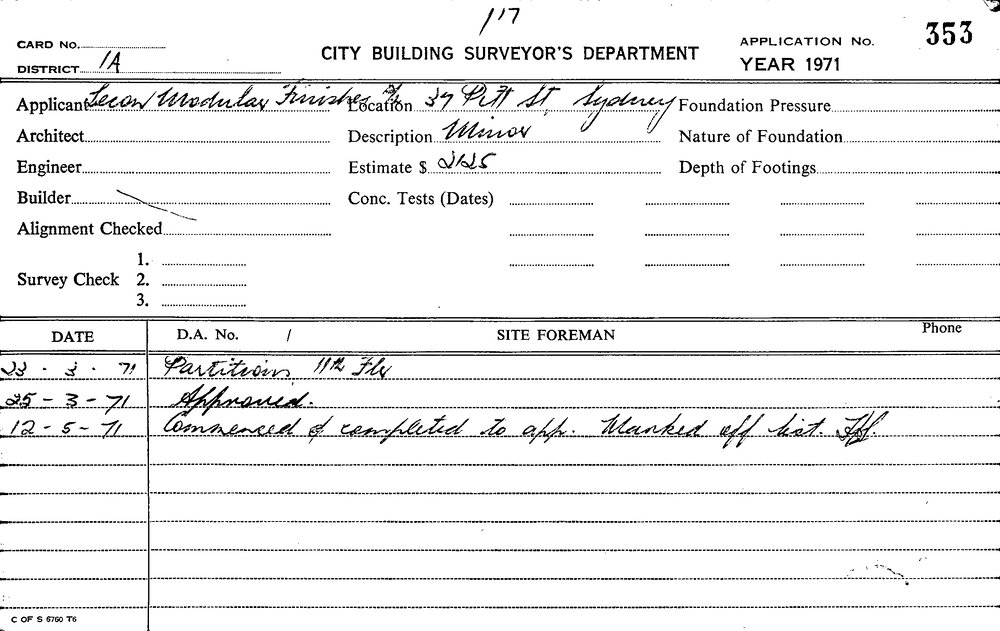 117
CARD No.
353
CITY BUILDING SURVEYOR'S DEPARTMENT
APPLICATION No.
DISTRICT 1A
YEAR 1971
Applicant Modular Finishes P/L Location 37 Pitt St, Sydney Foundation Pressure
Architect Description Minor Nature of Foundation
Engineer Estimate $ 2125 Depth of Footings
Builder Conc. Tests (Dates)
Alignment Checked
1.
Survey Check 2.
3.
DATE D.A. No. / SITE FOREMAN Phone
23 . 3 . 71 Partitions 11th Flr
25 - 3 - 71 Approved.
12 - 5 - 71 Commenced & completed to app. Marked off list.
C OF S 6760 T6